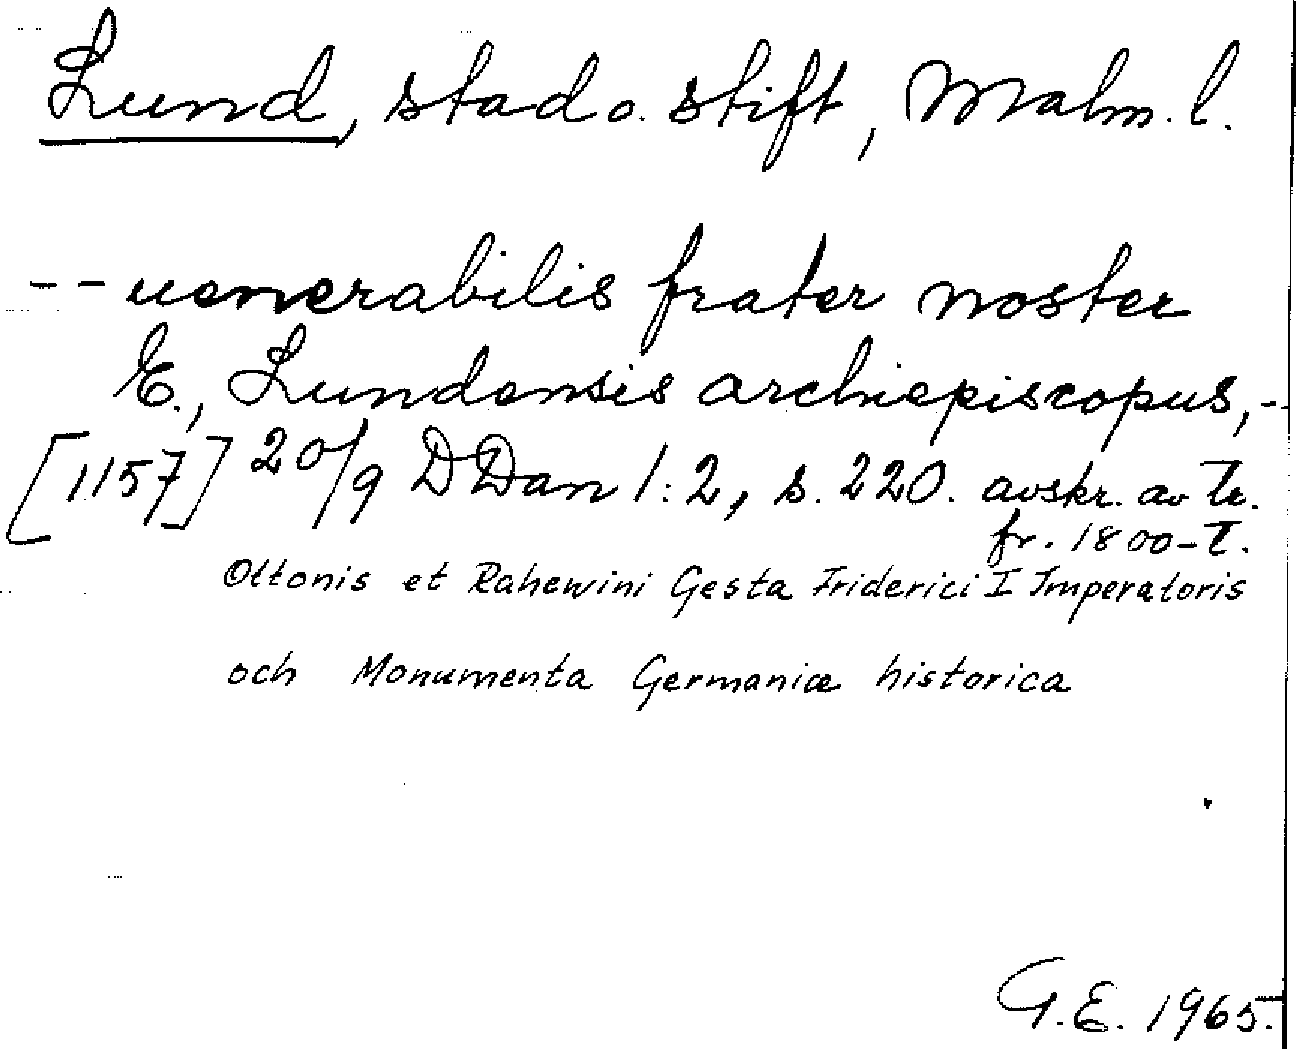 Lund, stad o. stift, Malm. l.
-- uenerabilis frater noster
E., Lundensis archiepiscopus, -
[1157] 20/9 DDan 1:2, s. 220. avskr. av tr.
fr. 1800-t.
Ottonis et Rahewini Gesta Friderici I Imperatoris
och Monumenta Germaniæ historica
G.E. 1965.